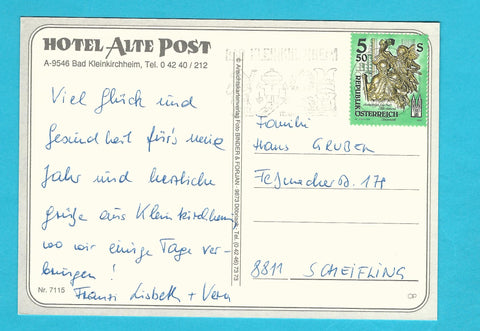 HOTEL ALTE POST
A-9546 Bad Kleinkirchheim, Tel. 0 42 40 / 212
Viel Glück und
Gesundheit für's neue
Jahr und herzliche
Grüße aus Kleinkirchheim
wo wir einige Tage ver-
bringen!
Franzi Lisbeth + Vera
Nr. 7115
© Ansichtskartenverlag Foto BINDER &
5 50 S
REPUBLIK
ÖSTERREICH
Familie
Hans GRUBER
178
8811 SCHEIFLING